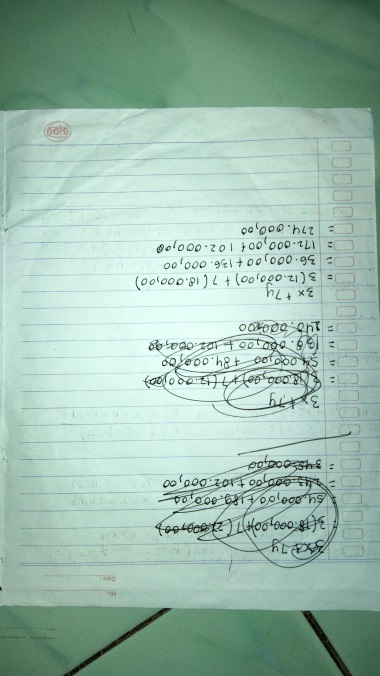 No.
Date:
3x + 7y
= 3(18.000,00) + 7(27.000,00)
= 54.000,00 + 189.000,00
= 243.000,00 + 102.000,00
= 345.000,00
3x + 7y
= 3(18.000,00) + 7(12.000,00)
= 54.000,00 + 84.000,00
= 138.000,00 + 102.000,00
= 240.000,00
3x + 7y
= 3(12.000,00) + 7(18.000,00)
= 36.000,00 + 136.000,00
= 172.000,00 + 102.000,00
= 274.000,00
SIDU